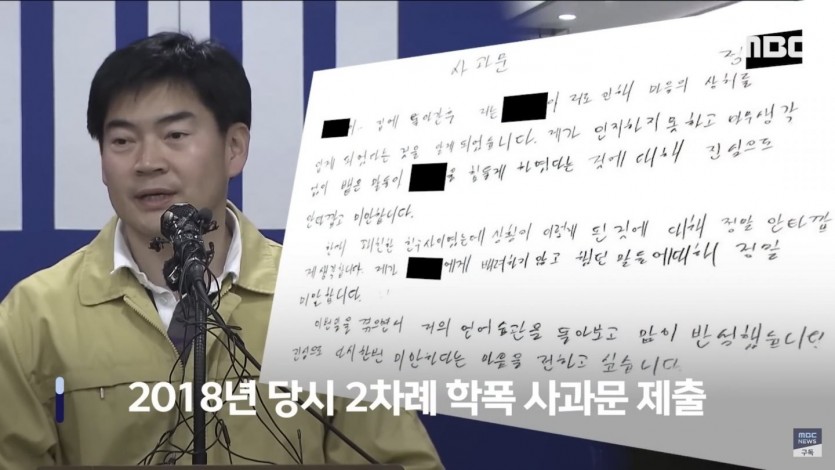 MBC
사과문 정
집에 돌아간후 저는 이 저로 인해 마음의 상처를
입게 되었다는 것을 알게 되었습니다. 제가 인지하지 못하고 아무생각
없이 뱉은 말들이 을 힘들게 하였다는 것에 대해 진심으로
안타깝고 미안합니다.
친한 친구사이였는데 상황이 이렇게 된것에 대해 정말 안타깝
게 생각합니다. 제가 에게 배려하지 않고 했던 말들에대해 정말
미안합니다.
겪으면서 저의 언어습관을 돌아보고 많이 반성했습니다!
진심으로 다시한번 미안하다는 마음을 전하고 싶습니다.
2018년 당시 2차례 학폭 사과문 제출
MBC
NEWS
구독